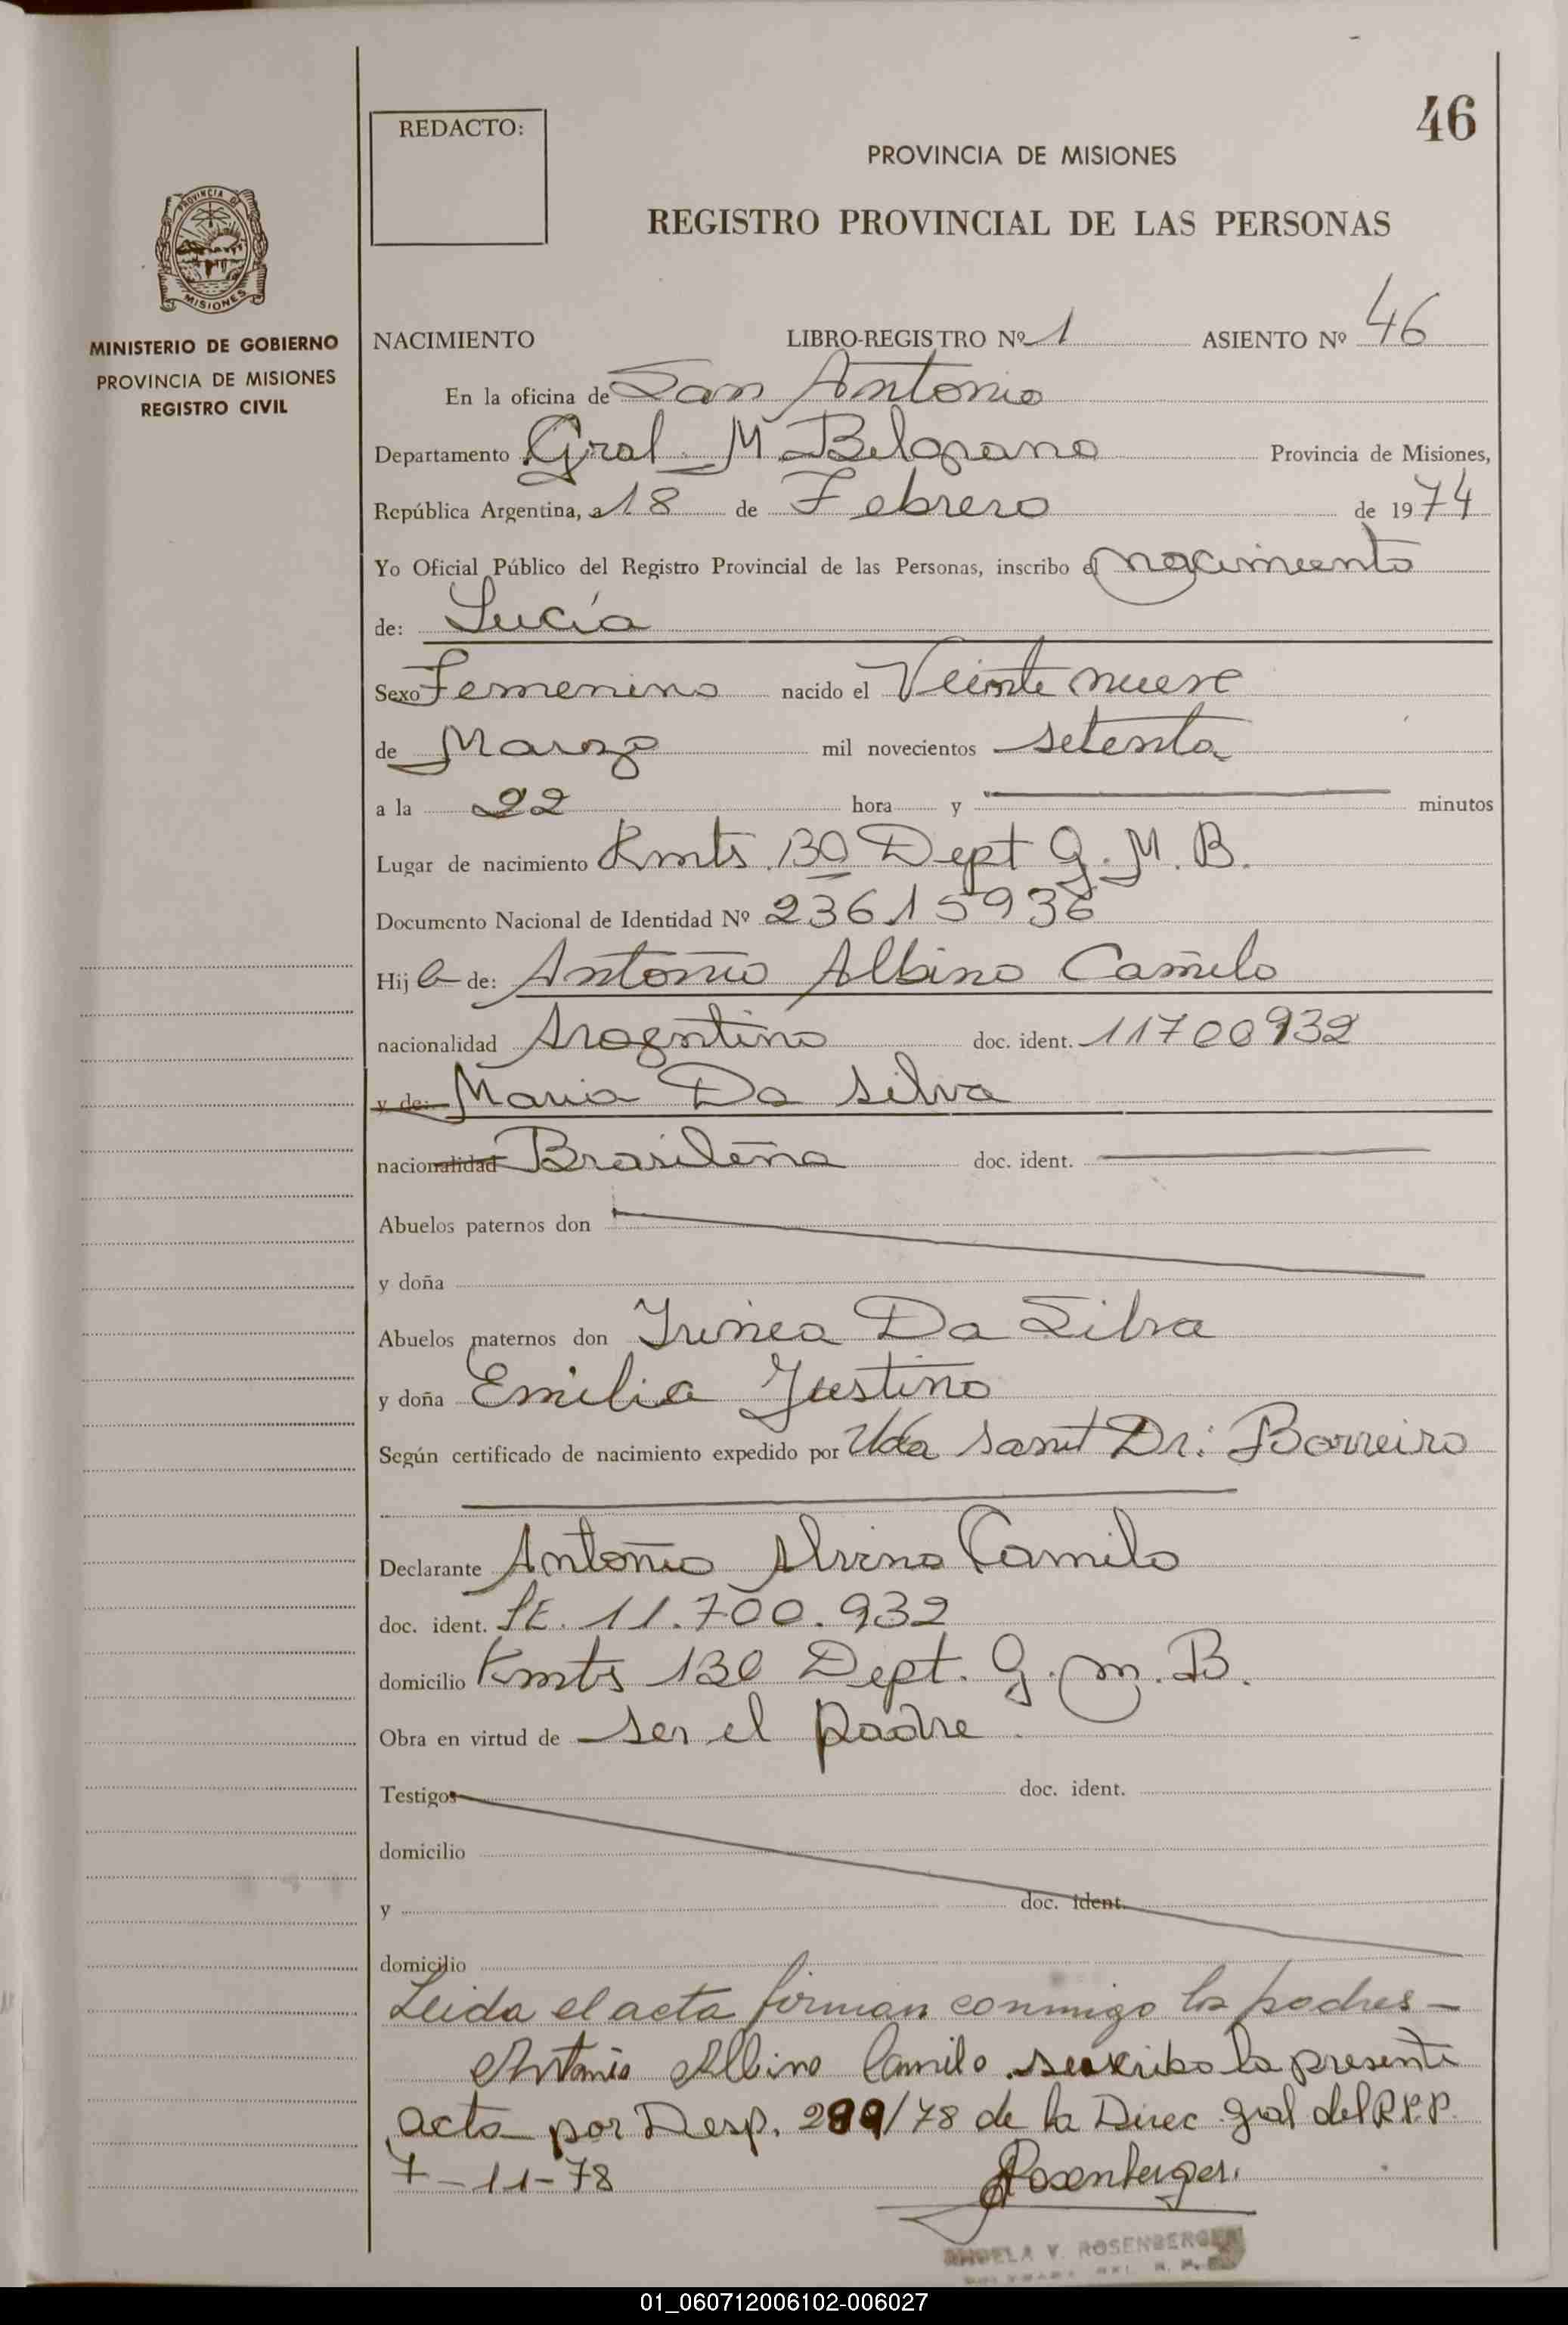 46
REDACTO:
PROVINCIA DE MISIONES
REGISTRO PROVINCIAL DE LAS PERSONAS
PROVINCIA DE
MISIONES
MINISTERIO DE GOBIERNO
PROVINCIA DE MISIONES
REGISTRO CIVIL
NACIMIENTO LIBRO-REGISTRO Nº 1 ASIENTO Nº 46
En la oficina de San Antonio
Departamento Gral. M Belgrano Provincia de Misiones,
República Argentina, a 18 de Febrero de 1974
Yo Oficial Público del Registro Provincial de las Personas, inscribo el nacimiento
de: Lucía
Sexo Femenino nacido el Veinte nueve
de Marzo mil novecientos setenta
a la 22 hora y minutos
Lugar de nacimiento Kmts. 130 Dept G. M. B.
Documento Nacional de Identidad Nº 23615936
Hija de: Antonio Albino Camilo
nacionalidad Argentino doc. ident. 11700932
y de: Maria Da Silva
nacionalidad Brasileña doc. ident.
Abuelos paternos don
y doña
Abuelos maternos don Da Silva
y doña Emilia Justino
Según certificado de nacimiento expedido por Sanit Dr: Borreiro
Declarante Antonio Camilo
doc. ident. 11.700.932
domicilio Kmts 130 Dept. G. M. B.
Obra en virtud de ser el padre.
Testigos doc. ident.
domicilio
y doc. ident.
domicilio
Leida el acta firman conmigo los padres -
Antonio Albino Camilo suscribo la presente
acta por Desp. 299/78 de la Direc gral del R.P.P.
7-11-78 Rosenberger.
ANGELA V. ROSENBERGER
01_060712006102-006027